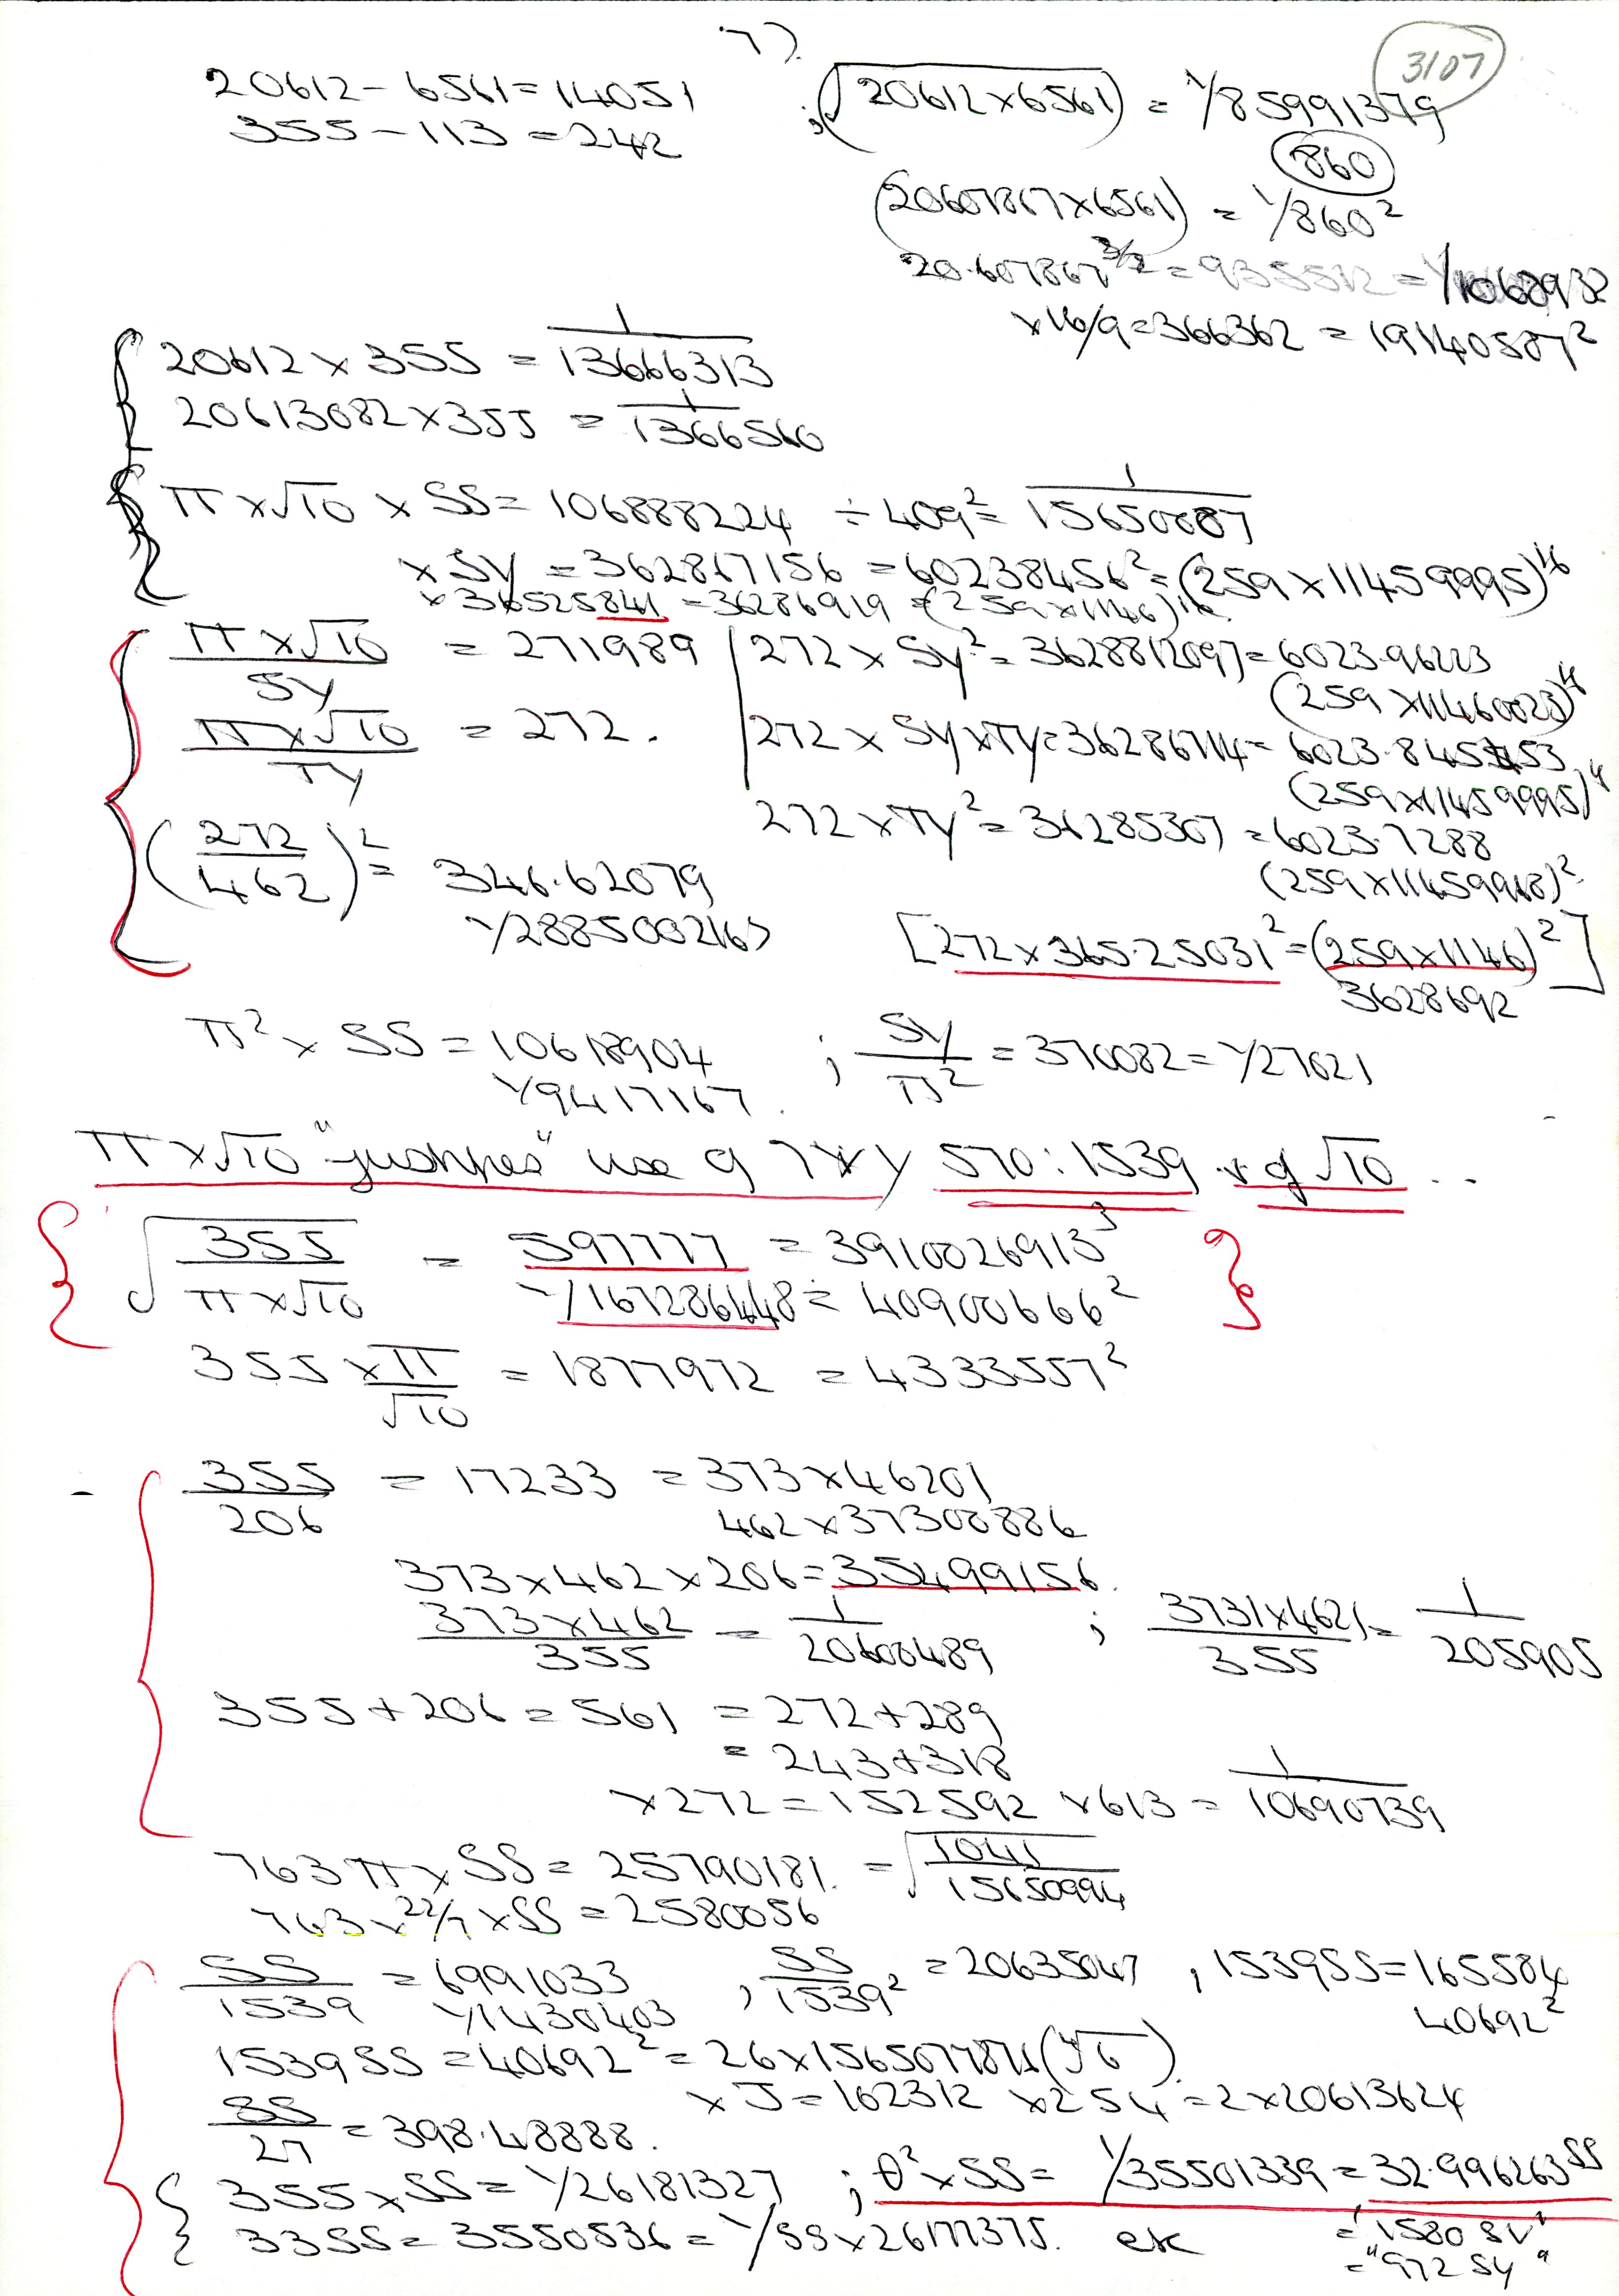 7).
3107
20612 - 6561 = 14051 ; (√20612 × 6561) = 1/85991379
355 - 113 = 242
860
(20607867 × 6561) = 1/860²
20.607867^3/2 = 935512 = 1/1068932
× 16/9 = 366362 = 19140507²
20612 × 355 = 1/13666313
20613082 × 355 = 1/1366560
π × √10 × SS = 106888224 ÷ 409² = 1/15650887
× SY = 362867156 = 60238456² = (259 × 11459995)^16
× 36525841 = 36286919 = (259 × 1146)
π × √10 / SY = 271989 | 272 × SY² = 3628812097 = 6023.96223
(259 × 11460023)⁴
π × √10 / TY = 272. | 272 × SY × TY = 36286714 = 6023.845453
(259 × 11459995)⁴
272 × TY² = 36285307 = 6023.7288
(259 × 11459968)²
(272/462)² = 346.62079
1/288500216
[272 × 365.25031² = (259 × 1146)²]
3628692
π² × SS = 10618904 ; SY/π² = 370082 = 1/27021
1/9417167.
π × √10 "justifies" use of 570 : 1539 & of √10 ..
√355/π × √10 = 597777 = 3910026913³
1/167286448 = 40900666²
355 × π/√10 = 1877972 = 4333557²
355/206 = 17233 = 373 × 46201
462 × 37300886
373 × 462 × 206 = 35499156.
373 × 462/355 = 1/20600489 ; 3731 × 4621/355 = 1/205905
355 + 206 = 561 = 272 + 289
= 243 + 318
× 272 = 152592 × 613 = 1/10690739
763 π × SS = 25790181. = √1041/15650994
763 × 22/7 × SS = 2580056
SS/1539 = 6991033 , SS/1539² = 20635047 , 1539SS = 165584
1/1430403 40692²
1539 SS = 40692² = 26 × 156507787 (∜6)
× J = 162312 × 254 = 2 × 20613624
SS/27 = 398.48888.
355 × SS = 1/26181327 ; θ² × SS = 1/35501339 = 32.996263 SS
33SS = 3550536 = 1/SS × 26177375. etc = "1580 SV"
= "972 SY"